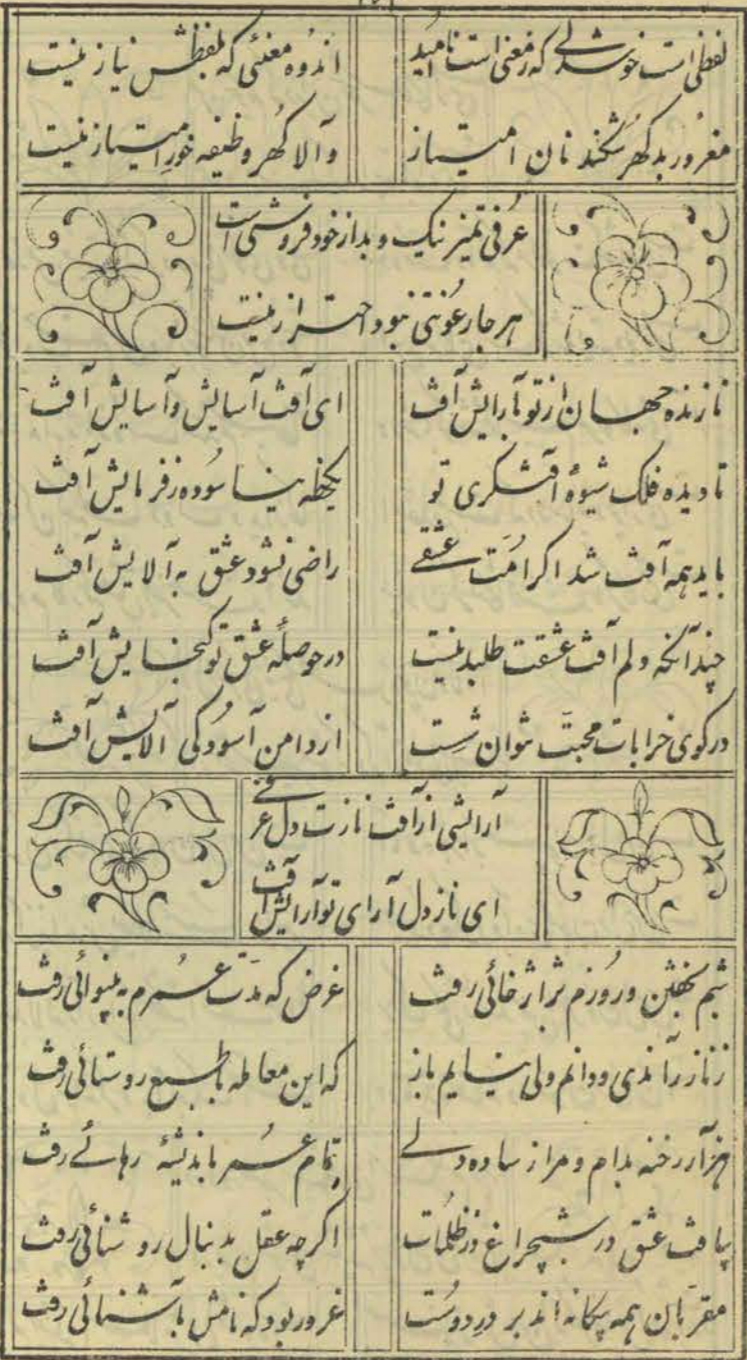 لفظی است خوشدلی که ز معنی است ناامید
اندوه معنئی که بلفظش نیاز نیست
مغرور بدگهر شکند نان امتیاز
والاگهر وظیفه خور امتیاز نیست
عرفی تمیز نیک و بد از خودفروشی است
هر جا رعونتی نبود احتراز نیست
نازنده جهان از تو بآرایش آفت
ای آفت آسایش و آسایش آفت
تا دیده فلک شیوهٔ آفتگری تو
یکلحظه نیاسوده ز فرمایش آفت
باید همه آفت شد اگر امت عشقی
راضی نشود عشق به آلایش آفت
چندآنکه دلم آفت عشقت طلبد نیست
در حوصلهٔ عشق تو گنجایش آفت
در کوی خرابات محبت نتوان شست
از دامن آسودگی آلایش آفت
آرایشی از آفت نازت دل عرفی
ای ناز دل آرای تو آرایش آفت
شبم بخفتن و روزم بژاژخائی رفت
غرض که مدت عمرم به بینوائی رفت
ز ناز راندی و دانم ولی نیایم باز
که این معامله با طبع روستائی رفت
هزار رخنه بدام و مرا ز ساده دلی
تمام عمر باندیشهٔ رهائی رفت
بیافت عشق در شبچراغ در ظلمات
اگر چه عقل بدنبال روشنائی رفت
مقربان همه بیگانه اند بر در دوست
غرور بود که نامش بآشنائی رفت